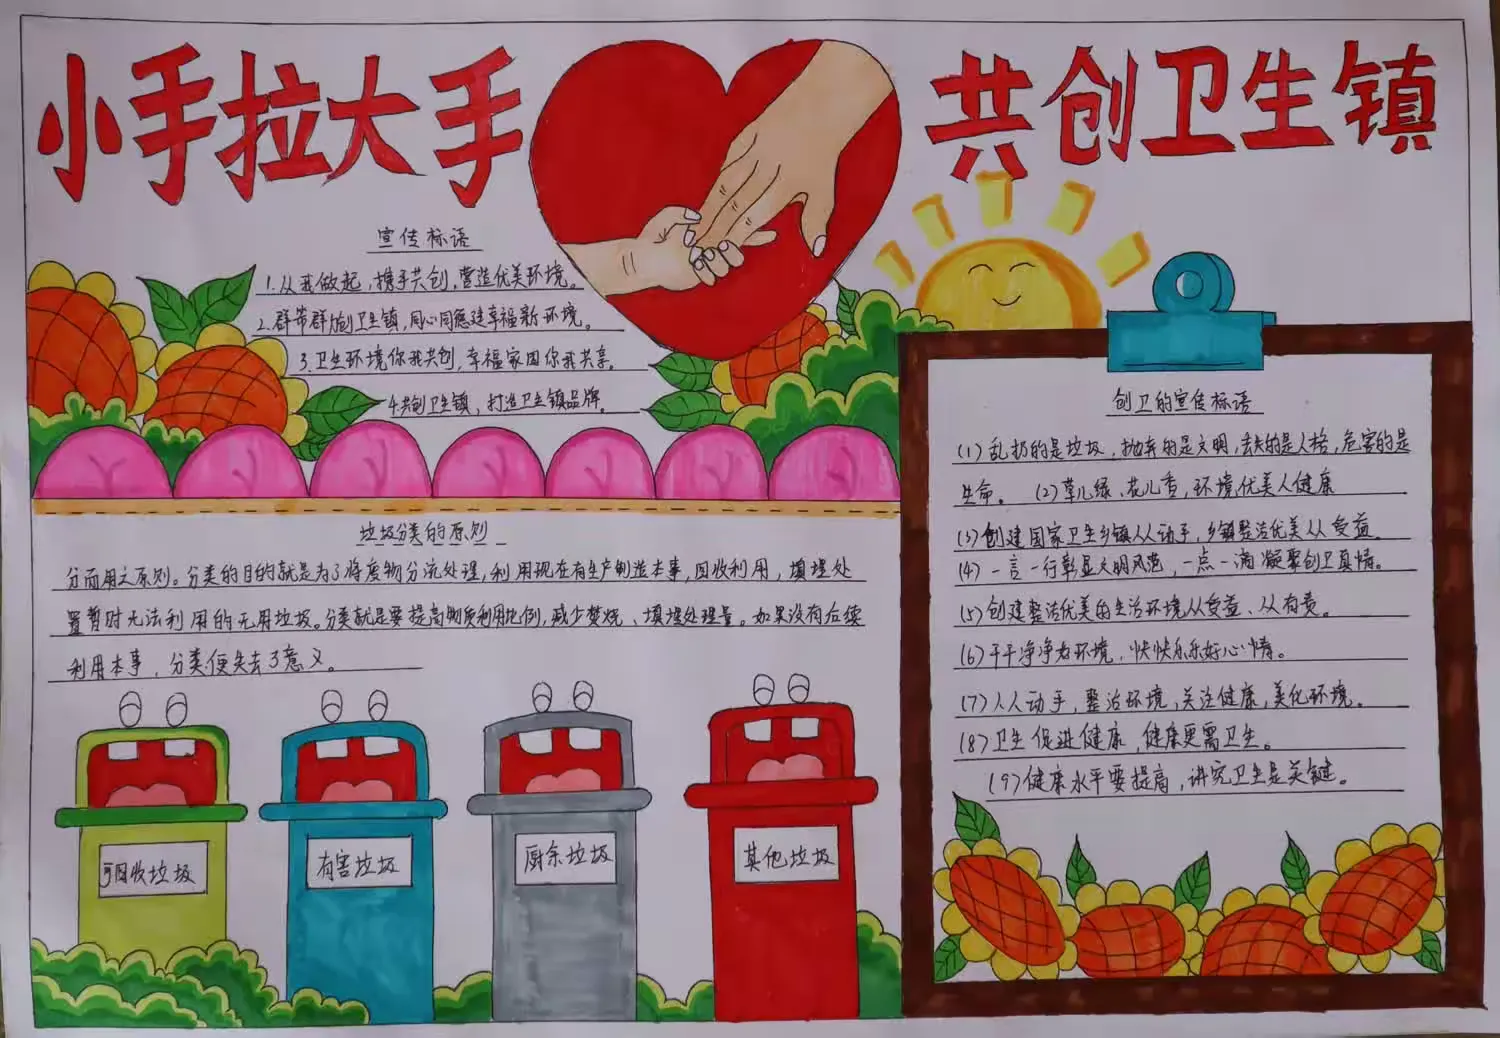 小手拉大手
共创卫生镇
宣传标语
1.从我做起,携手共创,营造优美环境。
2.群带群力创卫生镇,同心同德建幸福新环境。
3.卫生环境你我共创,幸福家园你我共享。
4.共创卫生镇,打造卫生镇品牌。
垃圾分类的原则
分而用之原则。分类的目的就是为了将废物分流处理,利用现在有生产制造本事,回收利用,填埋处
置暂时无法利用的无用垃圾。分类就是要提高物质利用比例,减少焚烧、填埋处理量。如果没有后续
利用本事,分类便失去了意义。
可回收垃圾
有害垃圾
厨余垃圾
其他垃圾
创卫的宣传标语
(1)乱扔的是垃圾,抛弃的是文明,丢失的是人格,危害的是
生命。 (2)草儿绿、花儿香,环境优美人健康
(3)创建国家卫生乡镇人人动手,乡镇整洁优美从受益。
(4)一言一行彰显文明风范,一点一滴凝聚创卫真情。
(5)创建整洁优美的生活环境从受益、从有责。
(6)干干净净好环境,快快乐乐好心情。
(7)人人动手,整治环境,关注健康,美化环境。
(8)卫生促进健康,健康更需卫生。
(9)健康水平要提高,讲究卫生是关键。